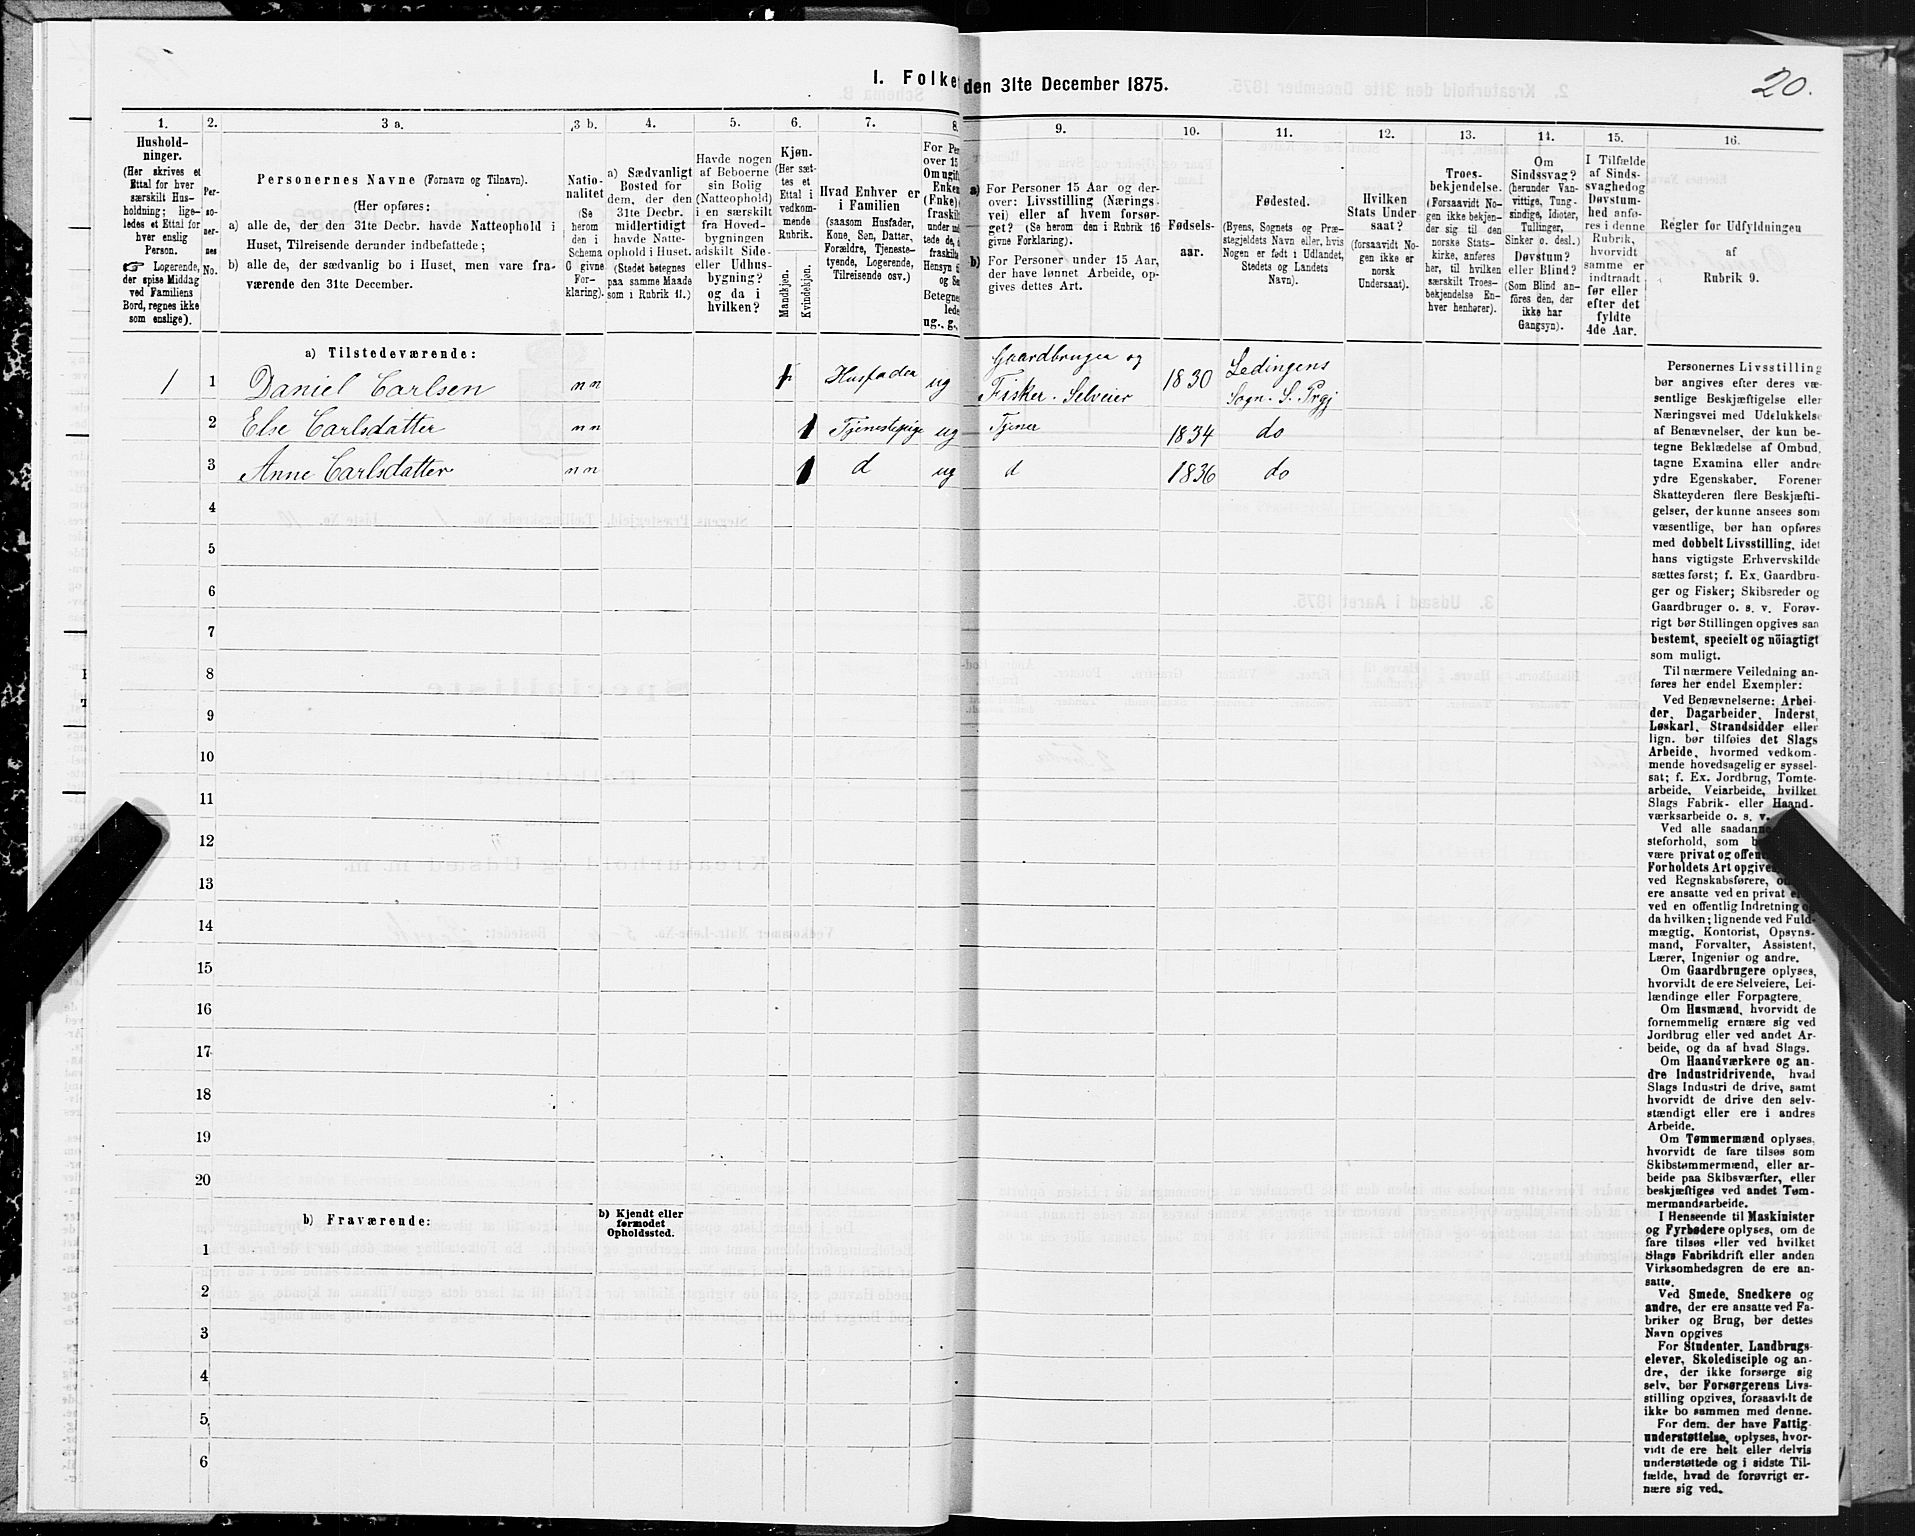 I. Folke den 31te December 1875.
20.
1.
Hushold-
ninger.
(Her skrives et
Ettal for hver
særskilt Hus-
holdning; lige-
ledes et Ettal for
hver enslig
Person.
☞ Logerende,
der spise Middag
ved Familiens
Bord, regnes ikke
som enslige).
2.
Per-
so-
ner-
nes
No.
3 a.
Personernes Navne (Fornavn og Tilnavn).
(Her opføres:
a) alle de, der den 31te Decbr. havde Natteophold i
Huset, Tilreisende derunder indbefattede;
b) alle de, der sædvanlig bo i Huset, men vare fra-
værende den 31te December.
3 b.
Natio-
nalitet
(Se
herom
den i
Schema
G givne
For-
klaring).
4.
a) Sædvanligt
Bosted for
dem, der den
31te Decbr.
midlertidigt
havde Natte-
ophold i Huset.
(Stedet betegnes
paa samme Maade
som i Rubrik 11.)
5.
Havde nogen
af Beboerne
sin Bolig
(Natteophold)
i en særskilt
fra Hoved-
bygningen
adskilt Side-
eller Udhus-
bygning?
og da i
hvilken?
6.
Kjøn.
(Her sæt-
tes et
Ettal i
vedkom-
mende
Rubrik.
Mandkjøn.
Kvindekjøn.
7.
Hvad Enhver er
i Familien
(saasom Husfader,
Kone, Søn, Datter,
Forældre, Tjeneste-
tyende, Logerende,
Tilreisende osv.)
8.
For Pe
over 15
Om ugift
Enke
(Fnke)
fraskil
under
tede de,
fraskilt
Hensyn
og Se
Betegne
lede
ug., g.,
9.
a) For Personer 15 Aar og der-
over: Livsstilling (Nærings-
vei) eller af hvem forsør-
get? (Se herom den i Rubrik 16
givne Forklaring).
b) For Personer under 15 Aar,
der have lønnet Arbeide, op-
gives dettes Art.
10.
Fødsels-
aar.
11.
Fødested.
(Byens, Sognets og Præ-
stegjeldets Navn eller, hvis
Nogen er født i Udlandet,
Stedets og Landets
Navn).
12.
Hvilken
Stats Under-
saat?
(forsaavidt No-
gen ikke er
norsk
Undersaat).
13.
Troes-
bekjendelse.
(Forsaavidt No-
gen ikke bekjen-
der sig til den
norske Stats-
kirke, anføres
her, til hvilken
særskilt Troes-
bekjendelse En-
hver henhører).
14.
Om
Sindssvag?
(herunder Van-
vittige, Tung-
sindige, Idioter,
Tullinger,
Sinker o. desl.)
Døvstum?
eller Blind?
(Som Blind an-
føres den, der
ikke har
Gangsyn).
15.
I Tilfælde
af Sinds-
svaghedog
Døvstum-
hed anfø-
res i denne
Rubrik,
hvorvidt
samme er
indtraadt
før eller
efter det
fyldte
4de Aar.
16.
Regler for Udfyldningen
af
Rubrik 9.
a) Tilstedeværende:
1 1 Daniel Carlsen nn 1 Husfader ug Gaardbruger og
Fisker. Selveier 1830 Lødingens
Sogn. S. Prgj
2 Else Carlsdatter nn 1 Tjenestepige ug Tjener 1834 do
3 Anne Carlsdatter nn 1 d ug d 1836 do
4
5
6
7
8
9
10
11
12
13
14
15
16
17
18
19
20
b) Fraværende:
b) Kjendt eller
formodet
Opholdssted.
1
2
3
4
5
6
Personernes Livsstilling
bør angives efter deres væ-
sentlige Beskjæftigelse eller
Næringsvei med Udelukkelse
af Benævnelser, der kun be-
tegne Beklædelse af Ombud,
tagne Examina eller andre
ydre Egenskaber. Forener
Skatteyderen flere Beskjæfti-
gelser, der kunne ansees som
væsentlige, bør han opføres
med dobbelt Livsstilling, idet
hans vigtigste Erhvervskilde
sættes først; f. Ex. Gaardbru-
ger og Fisker; Skibsreder og
Gaardbruger o. s. v. Forøv-
rigt bør Stillingen opgives saa
bestemt, specielt og nöiagtigt
som muligt.
Til nærmere Veiledning an-
føres her endel Exempler:
Ved Benævnelserne: Arbei-
der, Dagarbeider, Inderst,
Løskarl, Strandsidder eller
lign. bør tilføies det Slags
Arbeide, hvormed vedkom-
mende hovedsagelig er syssel-
sat; f. Ex. Jordbrug, Tomte-
arbeide, Veiarbeide, hvilket
Slags Fabrik- eller Haand-
værksarbeide o. s. v.
Ved alle saadann
steforhold, som b
være privat og offen
Forholdets Art opgives
ved Regnskabsførere,
ere ansatte ved en privat
ved en offentlig Indretning o
da hvilken; lignende ved Fuld-
mægtig, Kontorist, Opsyns-
mand, Forvalter, Assistent,
Lærer, Ingeniør og andre.
Om Gaardbrugere oplyses,
hvorvidt de ere Selveiere, Lei-
lændinge eller Forpagtere.
Om Husmænd, hvorvidt de
fornemmelig ernære sig ved
Jordbrug eller ved andet Ar-
beide, og da af hvad Slags.
Om Haandværkere og an-
dre Industridrivende, hvad
Slags Industri de drive, samt
hvorvidt de drive den selv-
stændigt eller ere i andres
Arbeide.
Om Tømmermænd oplyses,
hvorvidt de fare tilsøs som
Skibstømmermænd, eller ar-
beide paa Skibsværfter, eller
beskjæftiges ved andet Tøm-
mermandsarbeide.
I Henseende til Maskinister
og Fyrbødere oplyses, om de
fare tilsøs eller ved hvilket
Slags Fabrikdrift eller anden
Virksomhedsgren de ere an-
satte.
Ved Smede, Snedkere og
andre, der ere ansatte ved Fa-
briker og Brug, bør dettes
Navn opgives
For Studenter, Landbrugs-
elever, Skoledisciple og an-
dre, der ikke forsørge sig
selv, bør Forsørgerens Livs-
stilling opgives, forsaavidt de
ikke bo sammen med denne.
For dem, der have Fattig-
understøttelse, oplyses, hvor-
vidt de ere helt eller delvis
understøttede og i sidste Til-
fælde, hvad de forøvrigt er-
nære sig ved.